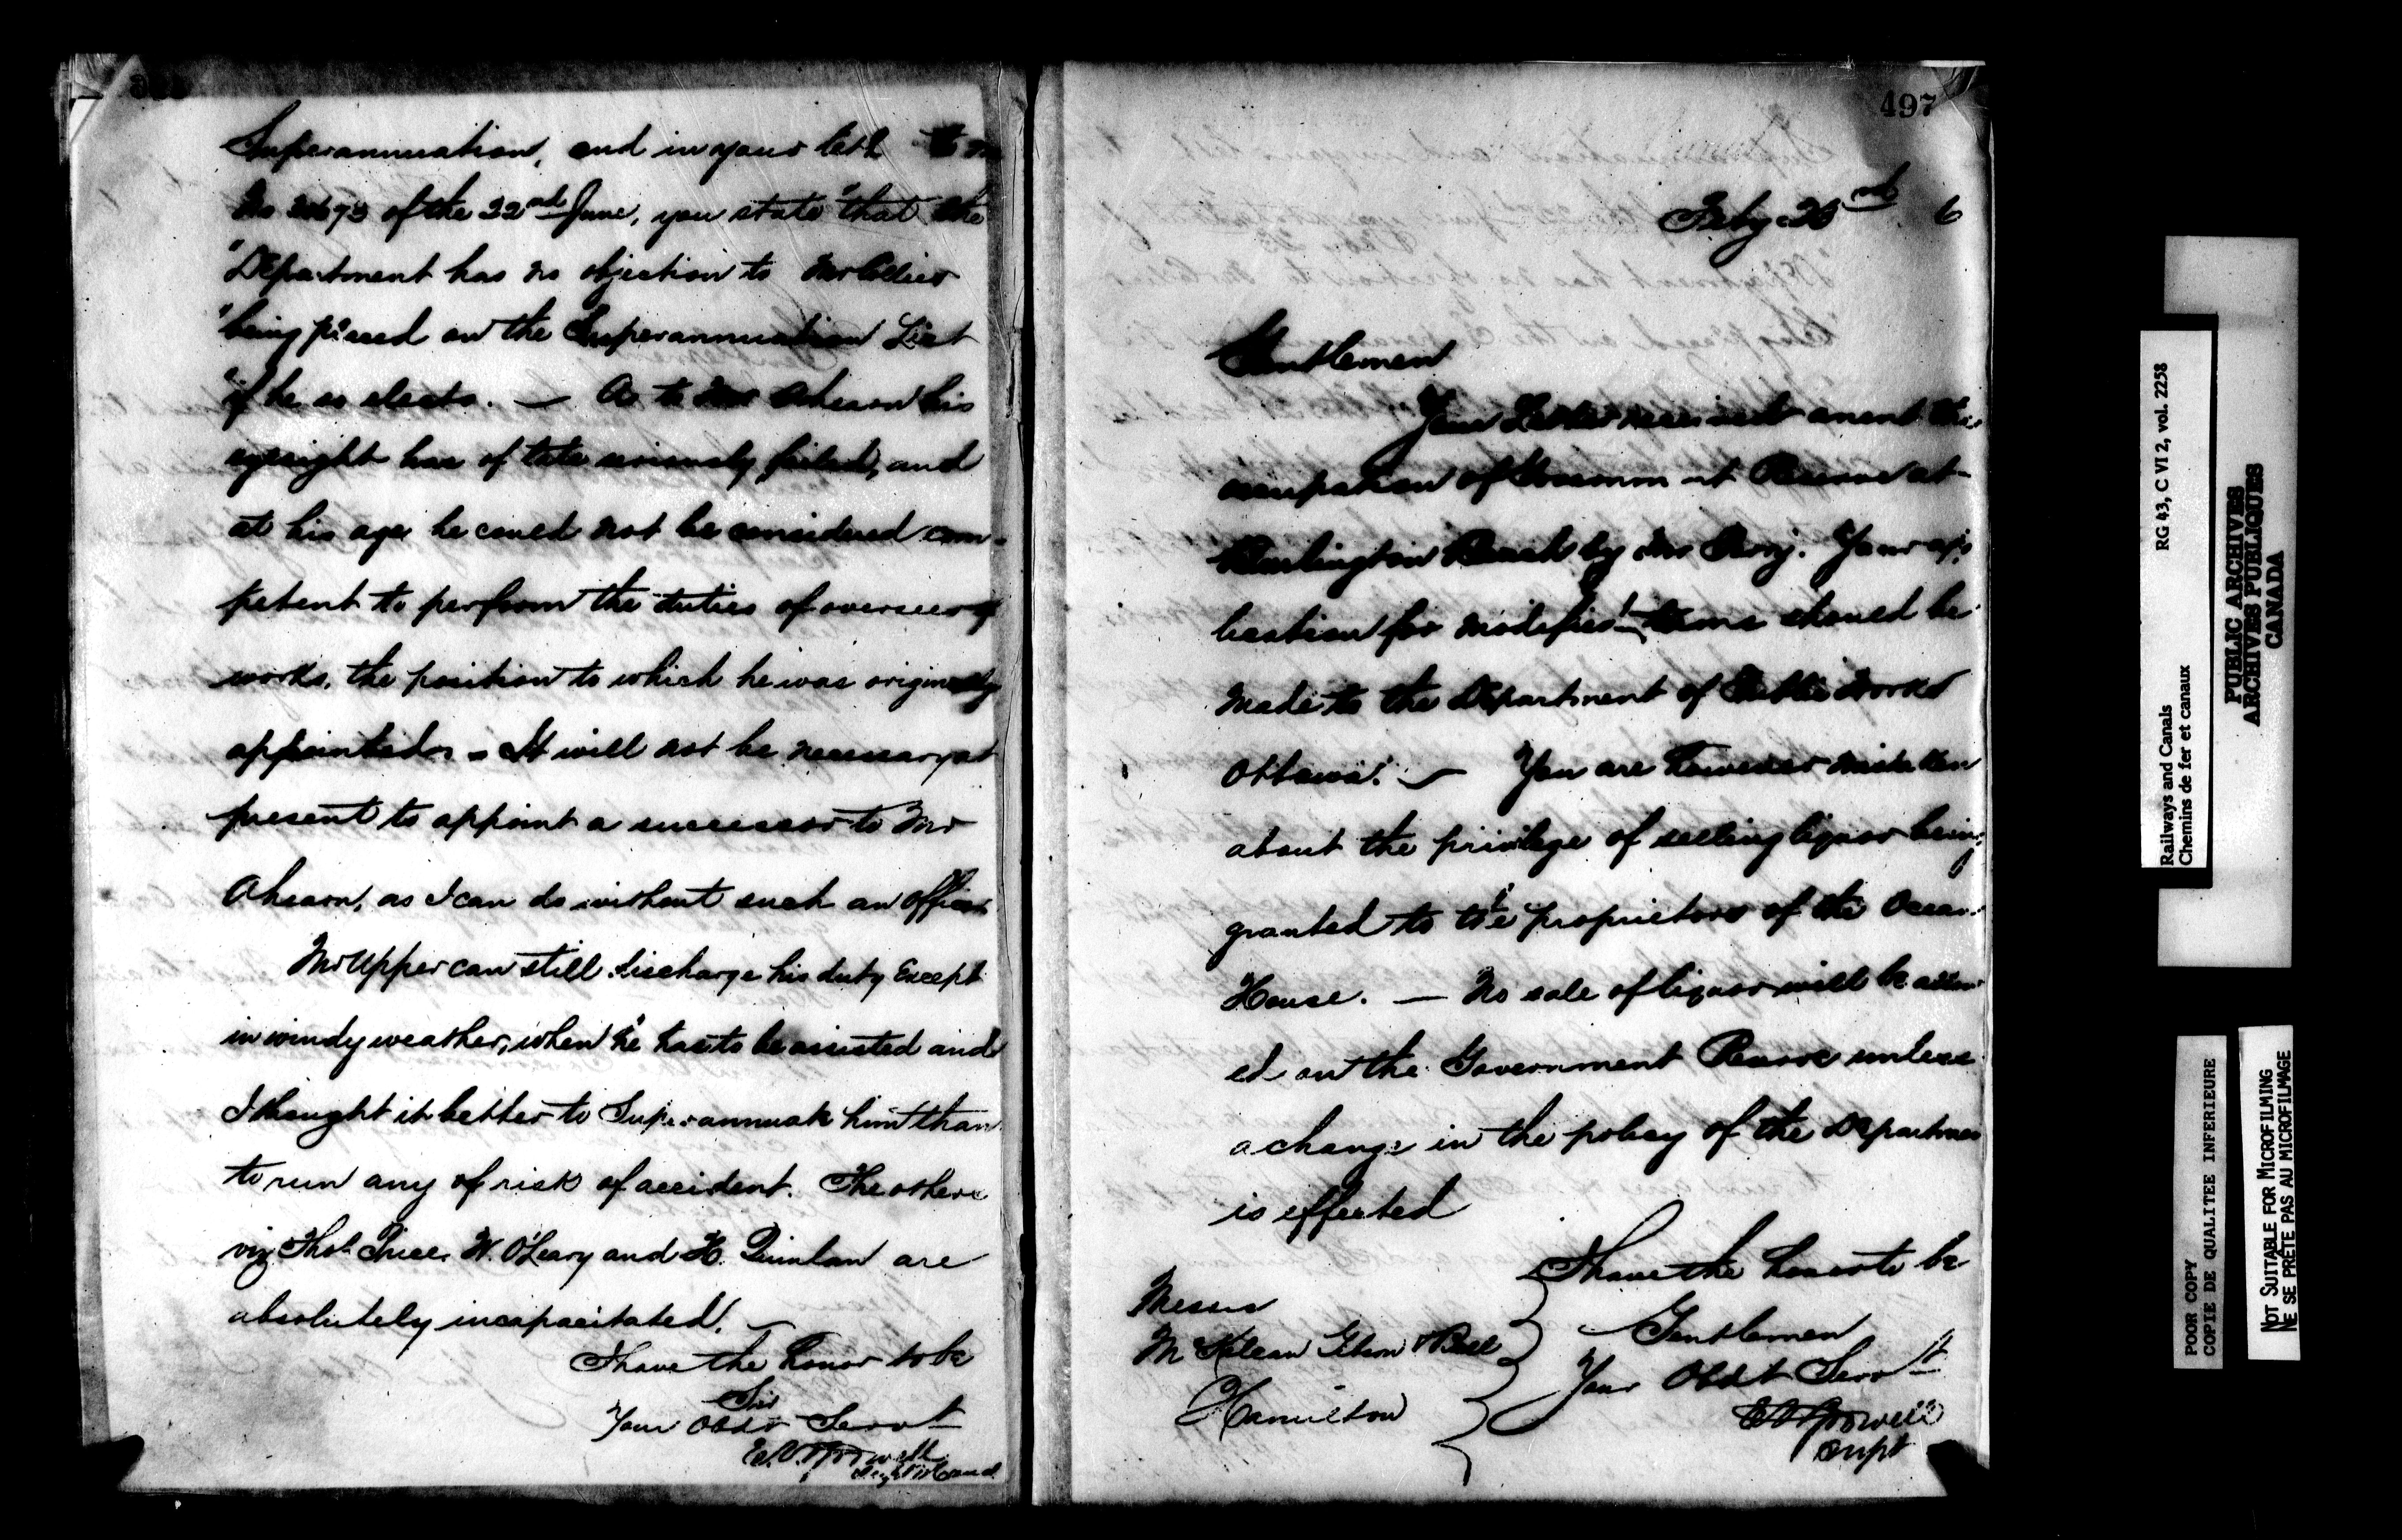 Superannuation, and in your lett
No of the 22nd June, you state "that the
"Department has no objection to Mr Collier
"being placed on the Superannuation List
"if he so elects. — As to Mr Ahearn his
eyesight has of late seriously failed, and
at his age he could not be considered com-
petent to perform the duties of overseer of
works, the position to which he was originally
appointed. - It will not be necessary at
present to appoint a successor to Mr
Ahearn, as I can do without such an officer
Mr Upper can still discharge his duty except
in windy weather, when he has to be assisted and
I thought it better to Superannuate him than
to run any of risk of accident. The others
viz Thos. W. O'Leary and H. Quinlan are
absolutely incapacitated. —
I have the honor to be
Sir
Your Obdt Servt
Supt W Canal
497
Feby 23rd 6
Gentlemen
Your Letter received anent the
occupation of Government Reserve at
Burlington Beach by Mr Perry. Your ap
lication for modified terms should be
made to the Department of Public Works
Ottawa. — You are however mistaken
about the privilege of selling liquor being
granted to the proprietors of the Ocean
House. — No sale of liquor will be allow
ed on the Government Reserve unless
a change in the policy of the Departmen
is effected
I have the honor to be
Gentlemen
Your Obdt Servt
Supt
Messrs
Gibson & Bell
Hamilton
RG 43, C VI 2, vol. 2258
Railways and Canals
Chemins de fer et canaux
PUBLIC ARCHIVES
ARCHIVES PUBLIQUES
CANADA
POOR COPY
COPIE DE QUALITEE INFERIEURE
NOT SUITABLE FOR MICROFILMING
NE SE PRÊTE PAS AU MICROFILMAGE